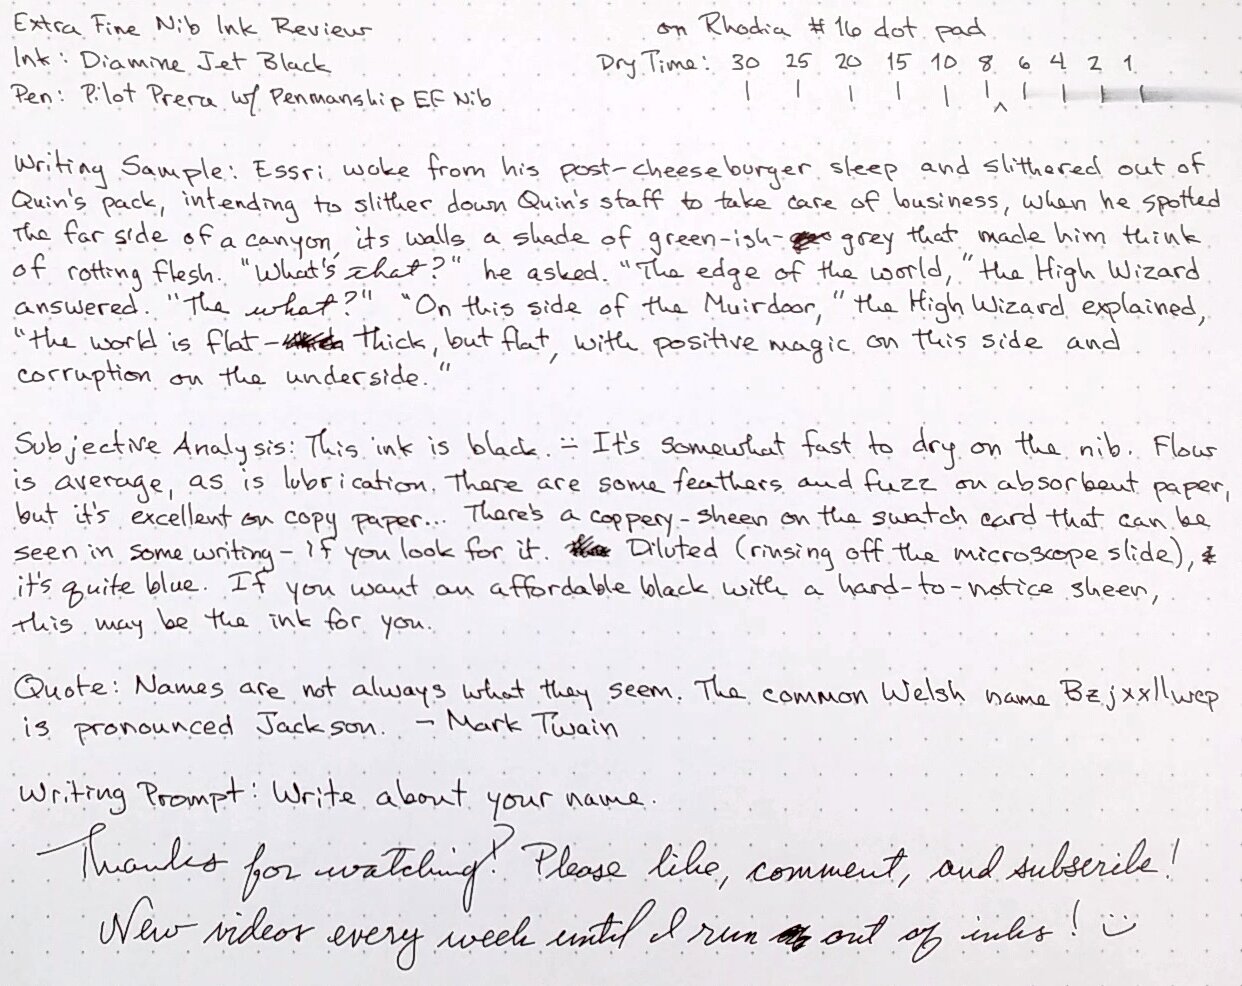 Extra Fine Nib Ink Review
on Rhodia #16 dot pad
Ink: Diamine Jet Black
Dry Time: 30 25 20 15 10 8 6 4 2 1
Pen: Pilot Prera w/ Penmanship EF Nib
Writing Sample: Essri woke from his post-cheeseburger sleep and slithered out of
Quin's pack, intending to slither down Quin's staff to take care of business, when he spotted
the far side of a canyon, its walls a shade of green-ish- grey that made him think
of rotting flesh. "What's that?" he asked. "The edge of the world," the High Wizard
answered. "The what?" "On this side of the Muirdoor," the High Wizard explained,
"the world is flat - thick, but flat, with positive magic on this side and
corruption on the underside."
Subjective Analysis: This ink is black. :- It's somewhat fast to dry on the nib. Flow
is average, as is lubrication. There are some feathers and fuzz on absorbent paper,
but it's excellent on copy paper... There's a coppery-sheen on the swatch card that can be
seen in some writing - if you look for it. Diluted (rinsing off the microscope slide),
it's quite blue. If you want an affordable black with a hard-to-notice sheen,
this may be the ink for you.
Quote: Names are not always what they seem. The common Welsh name Bzjxxllwcp
is pronounced Jackson. - Mark Twain
Writing Prompt: Write about your name.
Thanks for watching! Please like, comment, and subscribe!
New videos every week until I run out of inks! :)